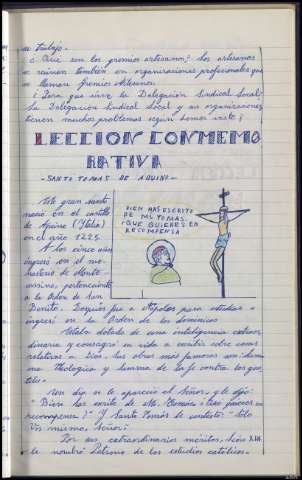 su trabajo.
¿ Que son los gremios artesanos? Los artesanos
se reunen también en organizaciones profesionales que
se llaman Gremios Artesanos
¿ Para que sirve la Delegación Sindical Local?
La Delegación Sindical Local y sus organizaciones
tienen muchos problemas según hemos visto.
LECCION CONMEMO
RATIVA
- SANTO TOMAS DE AQUINO -
Este gran santo
nació en el castillo
de Aquino (Italia)
en el año 1225.
A los cinco años
ingresó en el mo-
nasterio de Monte
assino, perteneciente
a la Orden de San
BIEN HAS ESCRITO
DE MI, TOMAS.
¿QUE QUIERES EN
RECOMPENSA
Benito. Después fue a Nápoles para estudiar e
ingresó en la Orden de los dominicos
Estaba dotado de una inteligencia extraor
dinaria y consagró su vida a escribir sobre cosas
relativas a Dios. Sus obras más famosas son: Suma
Teológica y Summa de la fe contra los gen
tiles.
Un día se le apareció el Señor, y le dijo:
" Bien has escrito de Mí, Tomás, ¿ Que quieres en
recompensa?" Y Santo Tomás le contestó: " Solo
Vos mismo, Señor."
Por sus extraordinarios méritos, León XIII
le nombró Patrono de los estudios católicos.